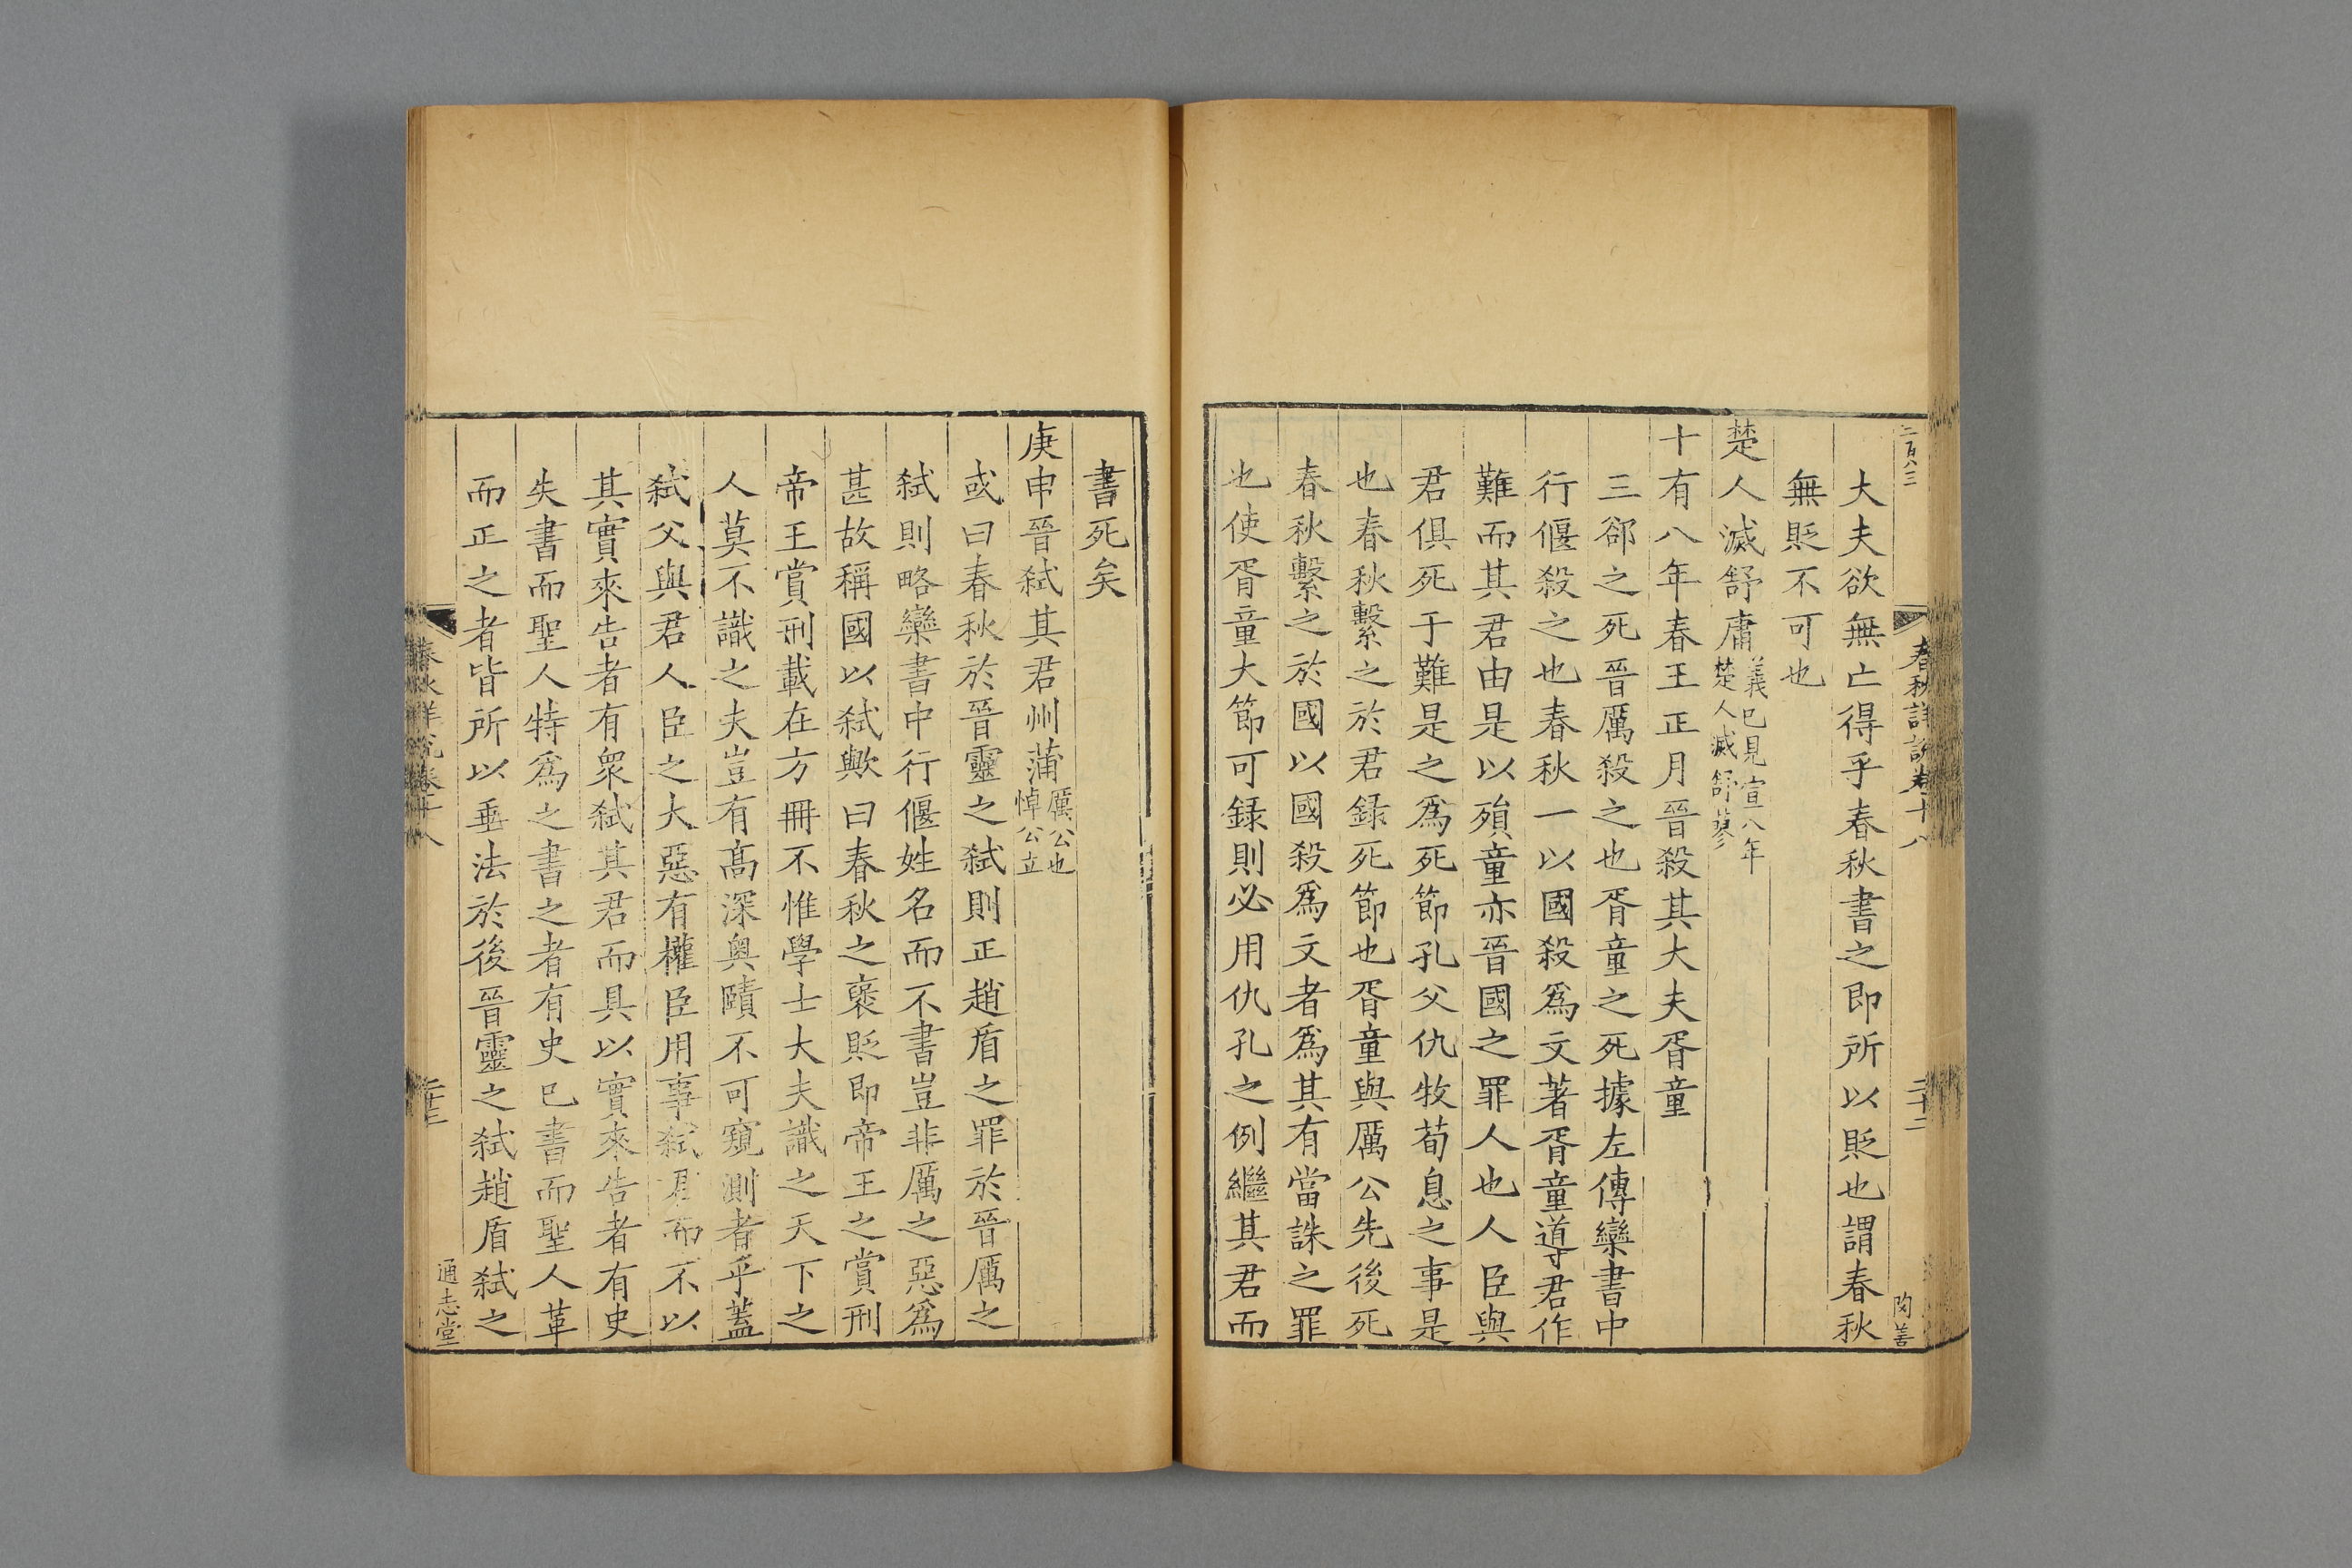 二百八三
春秋詳說卷十八
二十二
大夫欲無亡得乎春秋書之即所以貶也謂春秋
無貶不可也
楚人滅舒庸義已見宣八年
楚人滅舒蓼
十有八年春王正月晉殺其大夫胥童
三郤之死晉厲殺之也胥童之死據左傳欒書中
行偃殺之也春秋一以國殺爲文著胥童導君作
難而其君由是以殞童亦晉國之罪人也人臣與
君俱死于難是之爲死節孔父仇牧荀息之事是
也春秋繫之於君錄死節也胥童與厲公先後死
春秋繫之於國以國殺爲文者爲其有當誅之罪
也使胥童大節可錄則必用仇孔之例繼其君而
書死矣
庚申晉弑其君州蒲厲公也
悼公立
或曰春秋於晉靈之弑則正趙盾之罪於晉厲之
弑則略欒書中行偃姓名而不書豈非厲之惡爲
甚故稱國以弑歟曰春秋之襃貶即帝王之賞刑
帝王賞刑載在方冊不惟學士大夫識之天下之
人莫不識之夫豈有高深奧賾不可窺測者乎蓋
弑父與君人臣之大惡有權臣用事弑君而不以
其實來告者有衆弑其君而具以實來告者有史
失書而聖人特爲之書之者有史已書而聖人革
而正之者皆所以垂法於後晉靈之弑趙盾弑之
春秋詳說卷十八
二十三
通志堂